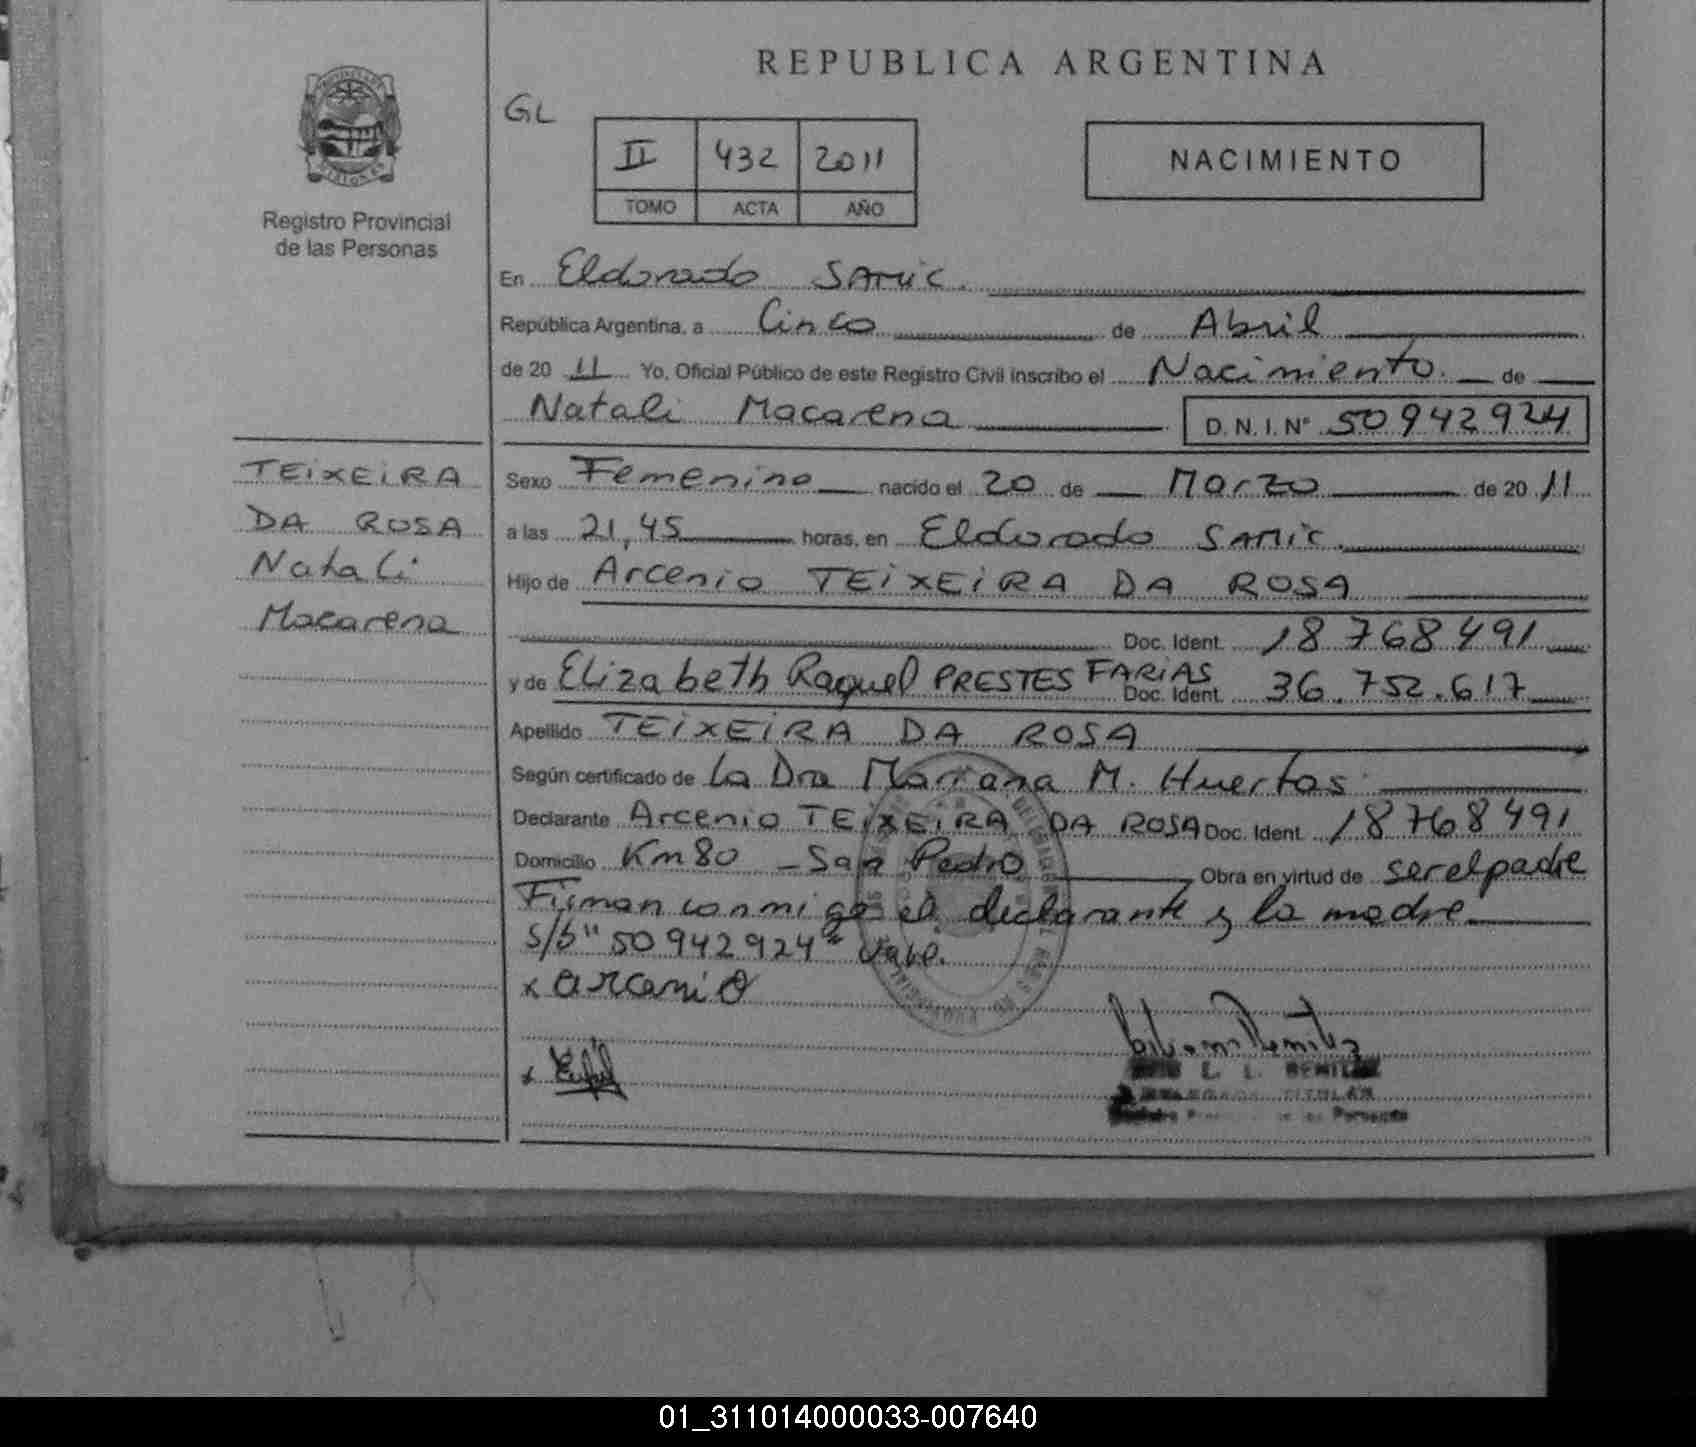 REPUBLICA ARGENTINA
GL
II 432 2011
TOMO ACTA AÑO
NACIMIENTO
Registro Provincial
de las Personas
En Eldorado SAMIC.
República Argentina, a Cinco de Abril
de 20 11 Yo, Oficial Público de este Registro Civil inscribo el Nacimiento. de
Natali Macarena D.N.I. Nº 50942924
TEIXEIRA
DA ROSA
Natali
Macarena
Sexo Femenino nacido el 20 de Marzo de 20 11
a las 21,45 horas, en Eldorado SAMIC.
Hijo de Arcenio TEIXEIRA DA ROSA
Doc. Ident. 18768491
y de Elizabeth Raquel PRESTES FARIAS Doc. Ident. 36.752.617
Apellido TEIXEIRA DA ROSA
Según certificado de La Dra Mariana M. Huertas.
Declarante Arcenio TEIXEIRA DA ROSA Doc. Ident. 18768491
Domicilio Km 80 - San Pedro Obra en virtud de ser el padre
Firman conmigo el declarante y la madre
s/b "50942924" Vale.
x arcenio
x
01_311014000033-007640